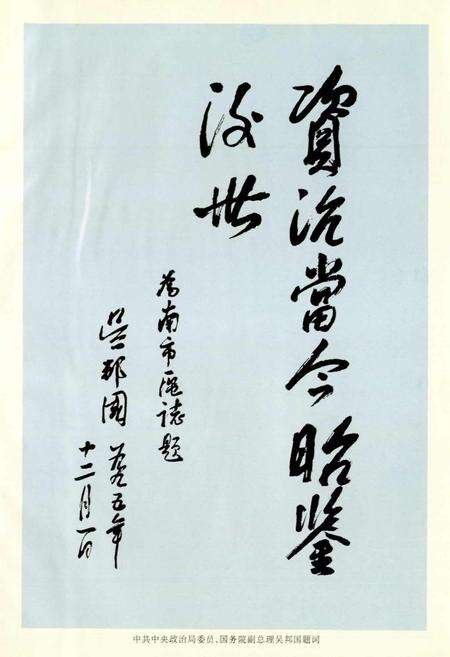 資治當今昭鑒
後世
為南市區誌題
吴邦國 一九九五年
十二月一日
中共中央政治局委员、国务院副总理吴邦国题词